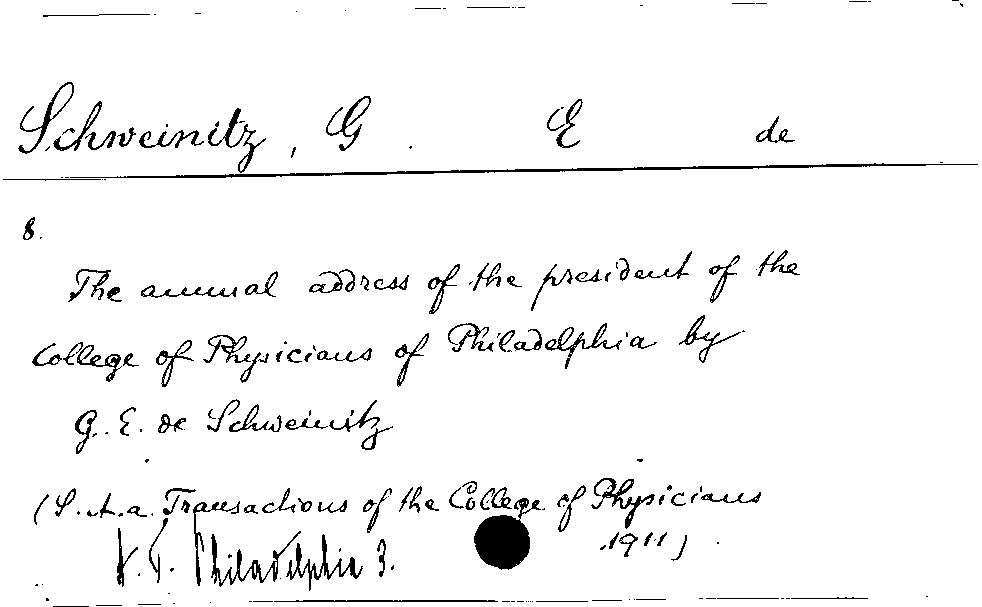 Schweinitz, G. E de
8.
The annual address of the president of the
College of Physicians of Philadelphia by
G. E. de Schweinitz
(S. A. a. Transactions of the College of Physicians
1911)
Philadelphia 3.